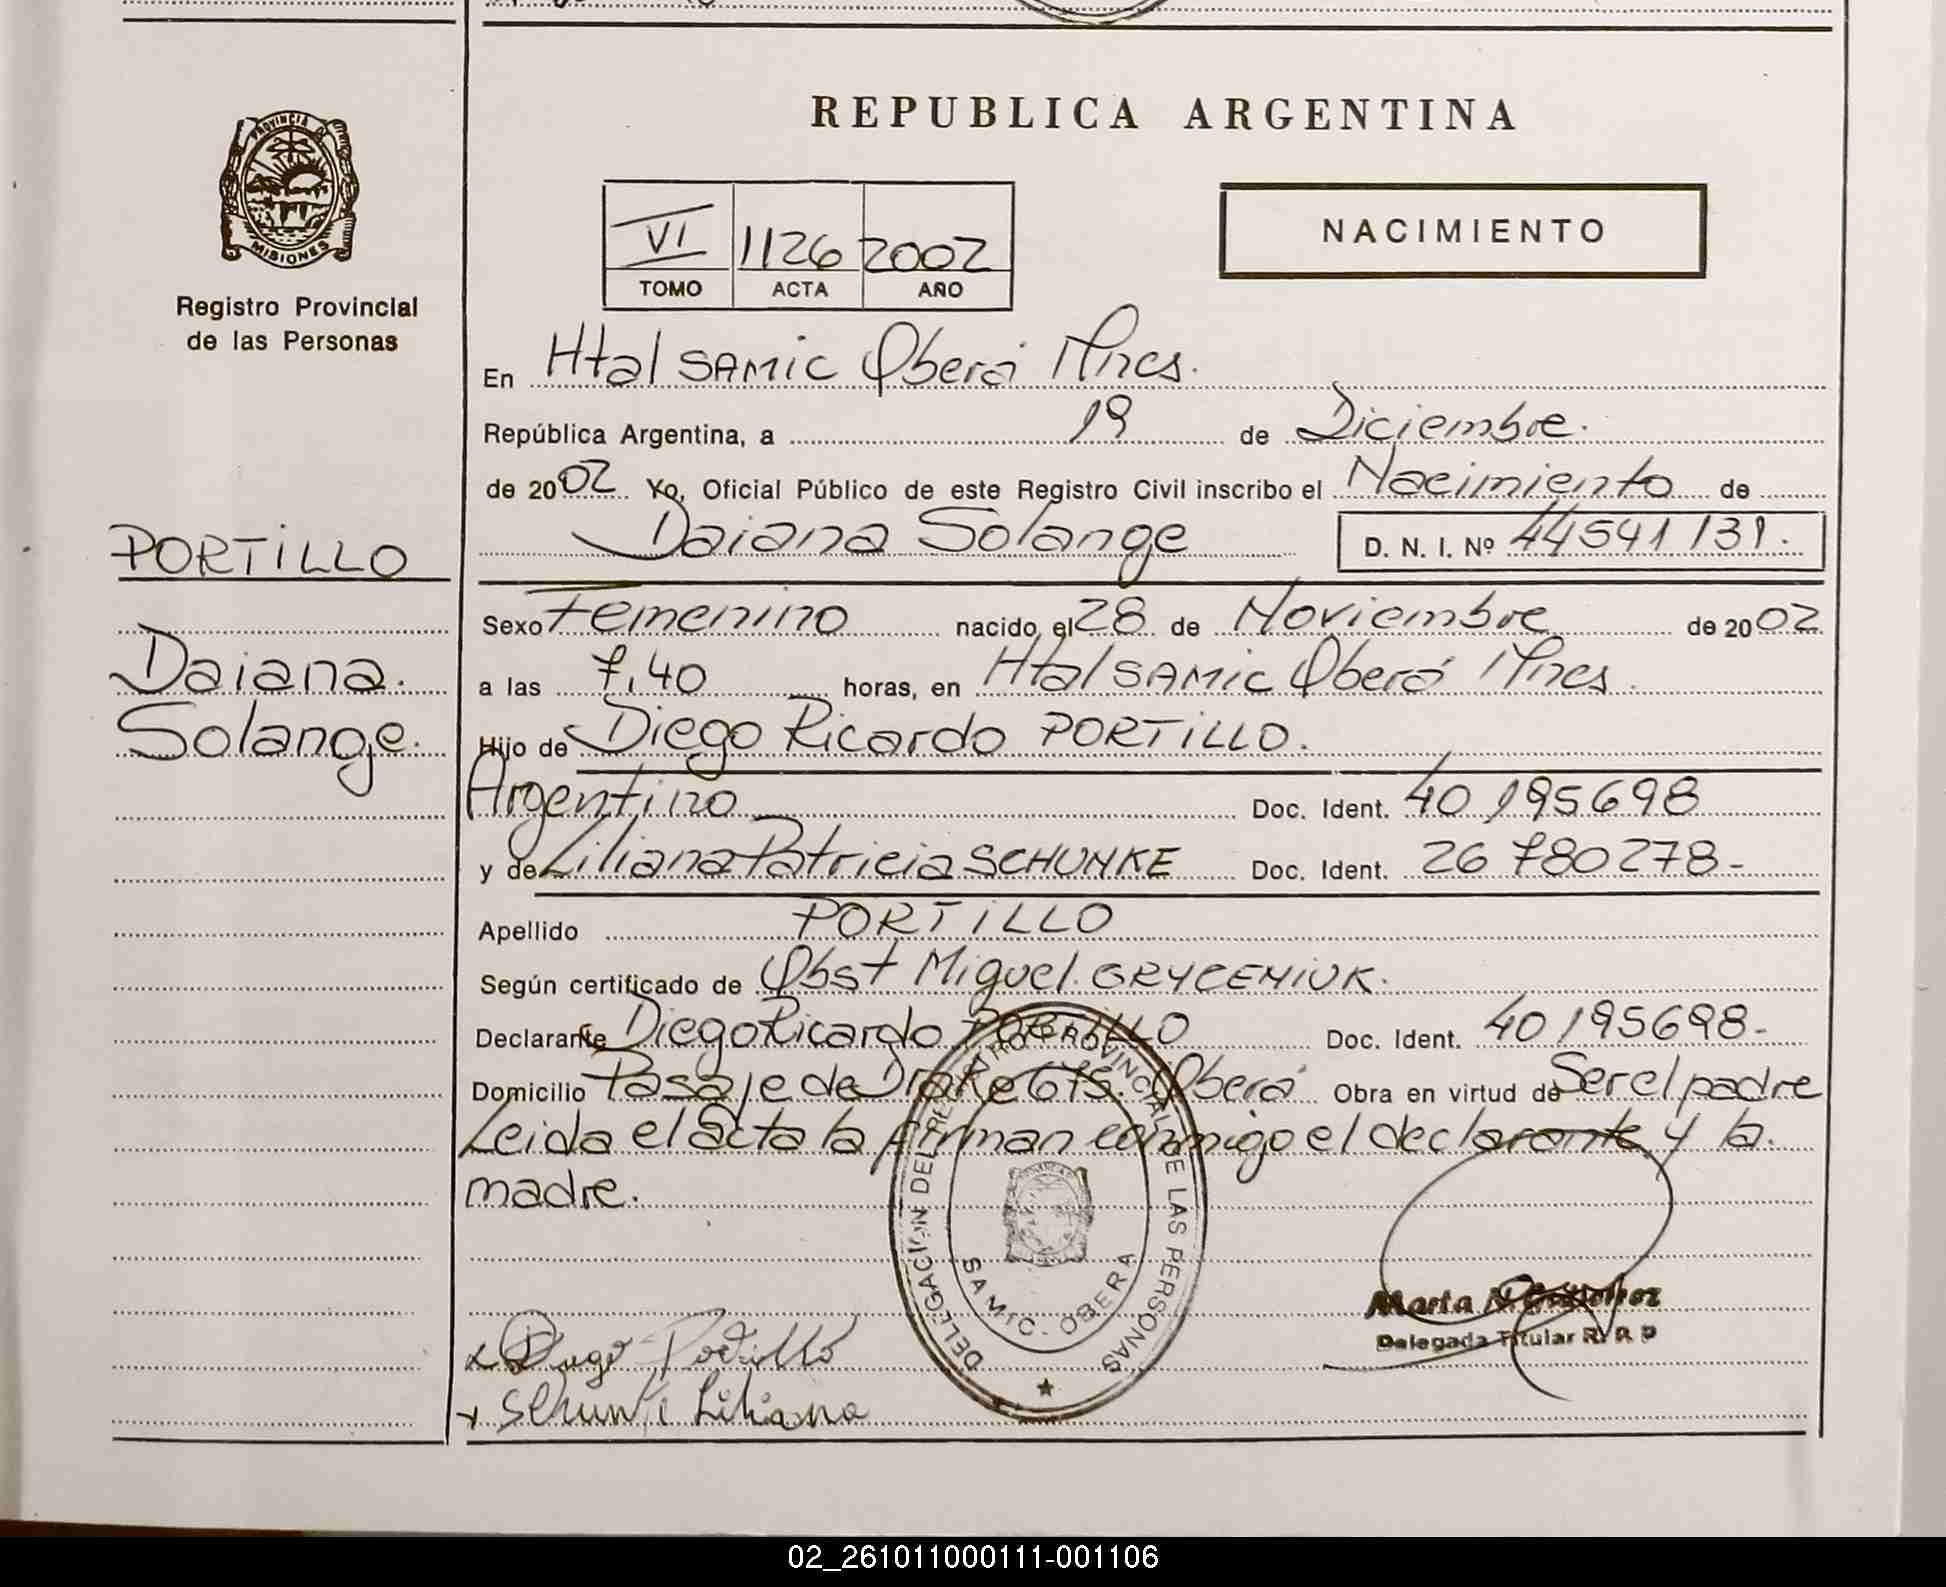 REPUBLICA ARGENTINA
PROVINCIA DE
MISIONES
Registro Provincial
de las Personas
VI 1126 2002
TOMO ACTA AÑO
NACIMIENTO
En Htal SAMic Oberá Mnes.
República Argentina, a 19 de Diciembre.
de 2002 Yo, Oficial Público de este Registro Civil inscribo el Nacimiento de
Daiana Solange D. N. I. Nº 44541131.
PORTiLLO
Daiana.
Solange.
Sexo Femenino nacido el 28 de Noviembre de 2002
a las 7,40 horas, en Htal SAMic Oberá Mnes.
Hijo de Diego Ricardo PORTiLLO.
Argentino Doc. Ident. 40195698
y de Liliana Patricia SCHUNKE Doc. Ident. 26780278-
Apellido PORTiLLO
Según certificado de Obst Miguel GRYCENIUK.
Declarante Diego Ricardo PORTiLLO Doc. Ident. 40195698-
Domicilio Pasaje de Drake Oberá Obra en virtud de Ser el padre
Leida el acta la firman conmigo el declarante y la
madre.
DELEGACION DEL REGISTRO PROVINCIAL DE LAS PERSONAS
SAMIC - OBERA
Maria
Delegada Titular R. P. P
x Diego Portillo
x Schunke Liliana
02_261011000111-001106